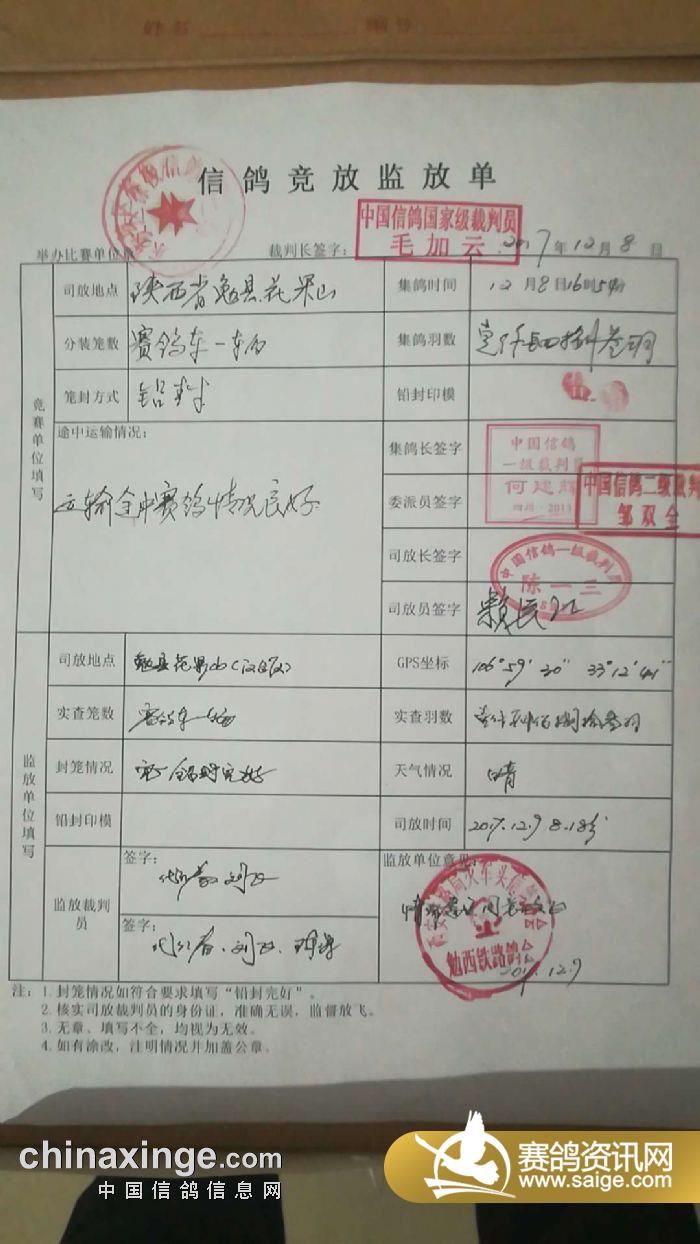 姓名 编号
信鸽竞放监放单
中国信鸽国家级裁判员
毛加云
举办比赛单位章 裁判长签字： 2017年12月8日
竞赛单位填写
司放地点 陕西省勉县花果山 集鸽时间 12月8日16时54分
分装笼数 赛鸽车一车 集鸽羽数
笼封方式 铅封 铅封印模
途中运输情况： 集鸽长签字
中国信鸽
一级裁判员
何建辉
四川·2013
运输途中赛鸽情况良好 委派员签字
中国信鸽二级裁判
邹双全
司放长签字
中国信鸽一级裁判员
陈一三
司放员签字
监放单位填写
司放地点 勉县花果山 GPS坐标 106°59′30″ 33°12′41″
实查笼数 赛鸽车一辆 实查羽数
封笼情况 铅封完好 天气情况 晴
铅封印模 司放时间 2017.12.9 8.18分
监放裁判员 签字： 监放单位意见：
签字：
火车头
勉西铁路鸽会
2017.12.9
注：1.封笼情况如符合要求填写“铅封完好”。
2.核实司放裁判员的身份证，准确无误，监督放飞。
3.无章、填写不全，均视为无效。
4.如有涂改，注明情况并加盖公章。
chinaxinge.com
中国信鸽信息网
赛鸽资讯网
www.saige.com